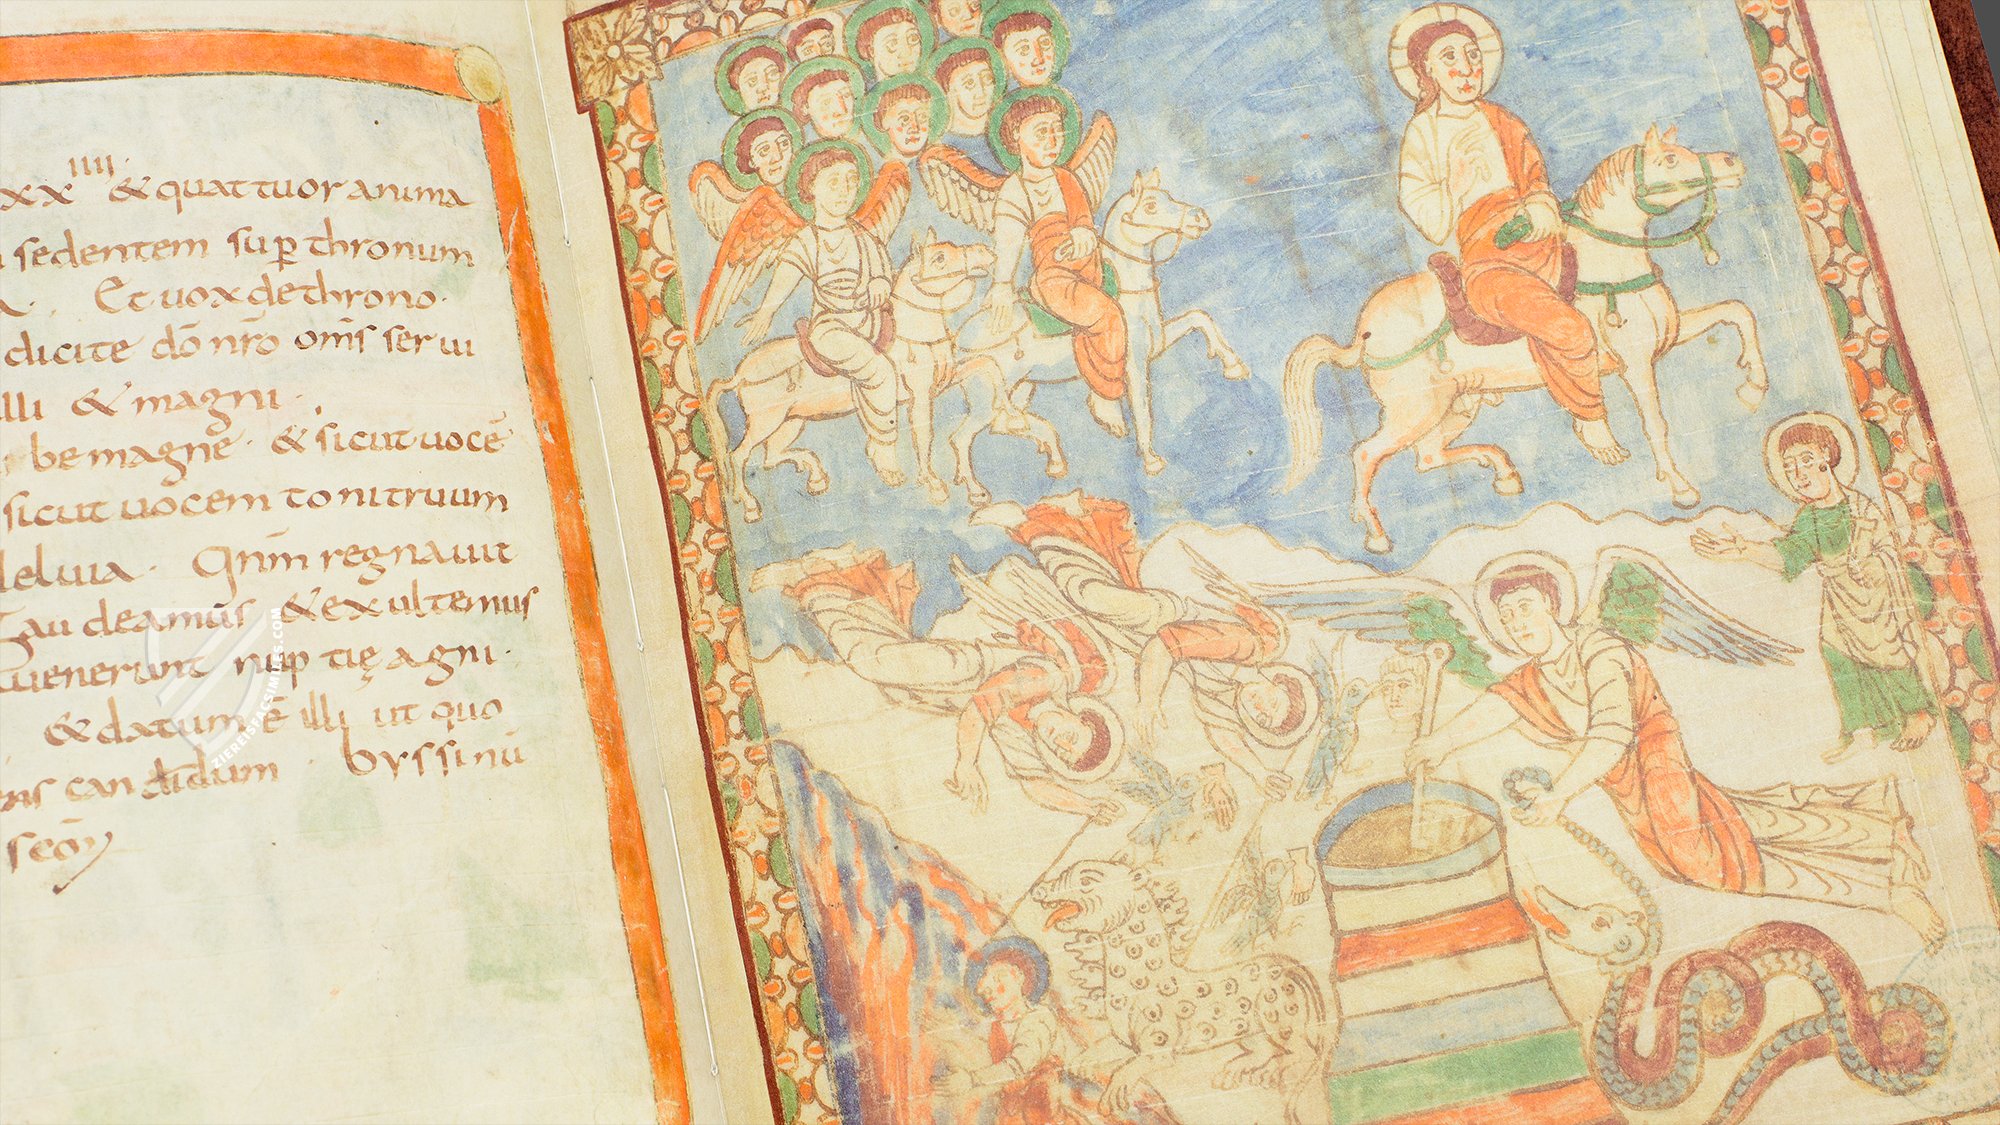 xx iiii & quattuor anima
sedentem sup thronum
Et vox de throno·
dicite dō nr̄o om̄s serui
illi & magni·
be magne· & sicut uocē
sicut uocem tonitruum
leluia· Qm̄ regnauit
Gaudeamus & exultemus
uenerunt nuptię agni·
& datum ē illi ut quo
candidum· byssinū
ZIEREISFACSIMILES.COM